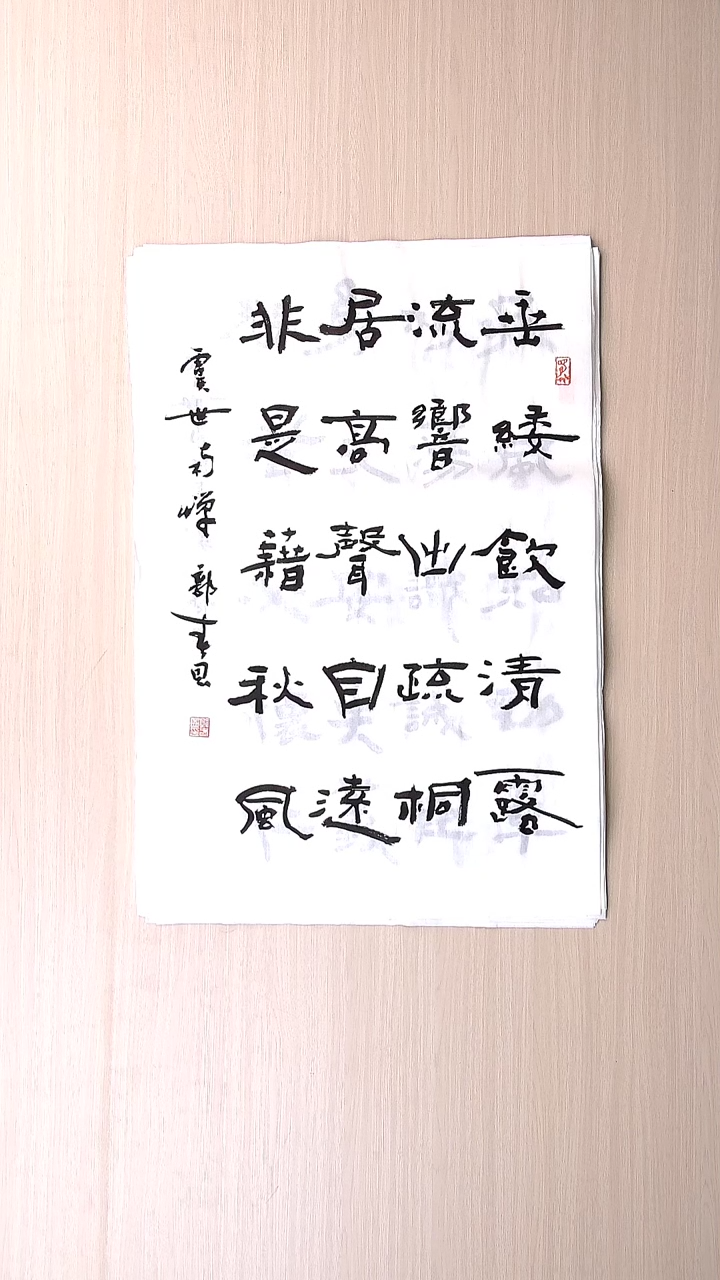 垂緌飲清露
流響出疏桐
居高聲自遠
非是藉秋風
虞世南蟬 郭春思